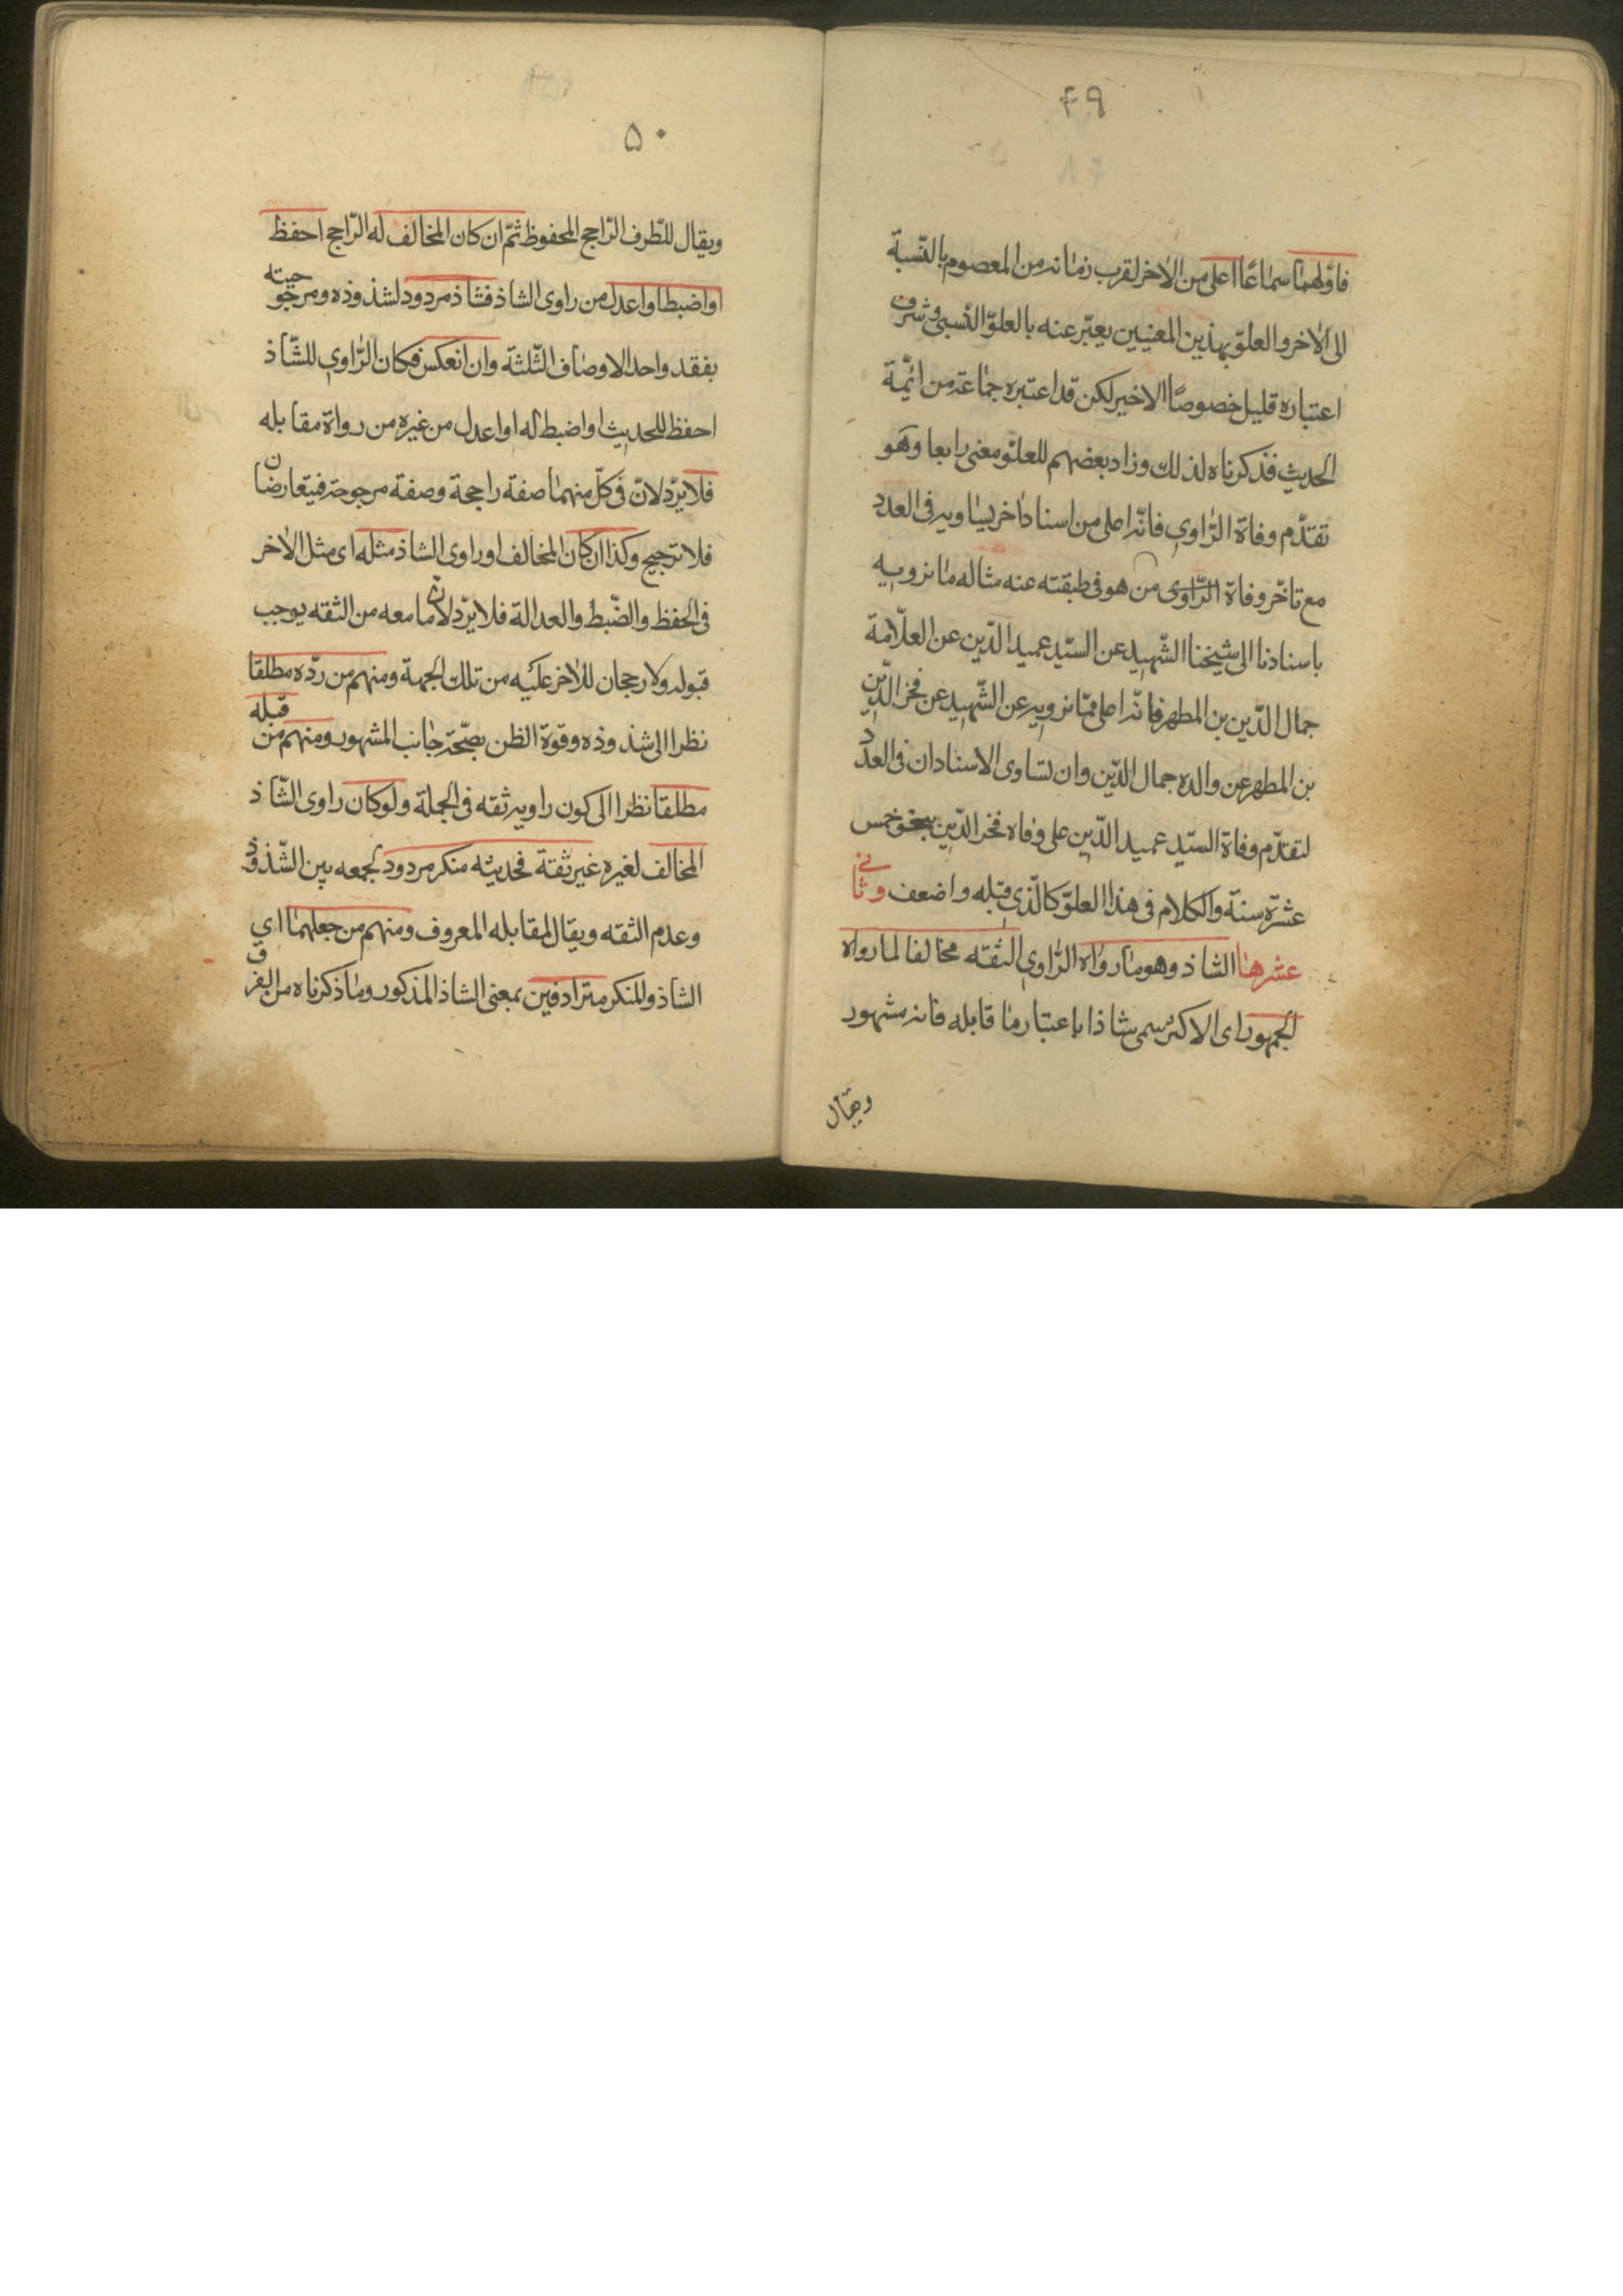 ۴۹
فاوّلهما سماعًا اعلى من الاخر لقرب زمانه من المعصوم بالنّسبة
الى الاخر والعلوّ بهذين المعنيين يعبّر عنه بالعلوّ النّسبى وشرف
اعتباره قليل خصوصًا الاخير لكن قد اعتبره جماعة من ائمّة
الحديث فذكرناه لذلك وزاد بعضهم للعلوّ معنى رابعا وهو
تقدّم وفاة الرّاوي فانّه اعلى من اسناد اخر يساويه فى العدد
مع تاخّر وفاة الرّاوى من هو فى طبقته عنه مثاله ما نرويه
باسنادنا الى شيخنا الشّهيد عن السيّد عميد الدّين عن العلّامة
جمال الدّين بن المطهر فانّه اعلى ممّا نرويه عن الشّهيد عن فخر الدّين
بن المطهر عن والده جمال الدّين وان تساوى الاسنادان فى العدد
لتقدّم وفاة السيّد عميد الدّين على وفاه فخر الدّين بنحو خمس
عشرة سنة والكلام فى هذا العلوّ كالّذي قبله واضعف وثانى
عشرها الشاذ وهو ما رواه الرّاوي الثقه مخالفا لما رواه
الجمهور اى الاكثر سمى شاذا باعتبار ما قابله فانه مشهور
ويقال
۵۰
ويقال للطّرف الرّاجح المحفوظ ثمّ ان كان المخالف له الرّاجح احفظ
او اضبط او اعدل من راوى الشاذ فشاذ مردود لشذوذه ومرجوحيته
بفقد واحد الاوصاف الثّلثة وان انعكس فكان الرّاوي للشّاذ
احفظ للحديث او اضبط له او اعدل من غيره من رواة مقابله
فلا يردّ لانّ فى كلّ منهما صفة راجحة وصفة مرجوحة فيتعارضان
فلا ترجيح وكذا ان كان المخالف او راوى الشاذ مثله اى مثل الاخر
فى الحفظ والضّبط والعدالة فلا يردّ لان ما معه من الثقه يوجب
قبوله ولا رجحان للاخر عليه من تلك الجهة ومنهم من ردّه مطلقا
نظرا الى شذوذه وقوّة الظن بصحّة جانب المشهور ومنهم من قبله
مطلقا نظرا الى كون راويه ثقه فى الجملة ولو كان راوى الشّاذ
المخالف لغيره غير ثقة فحديثه منكر مردود لجمعه بين الشّذوذ
وعدم الثقه ويقال لمقابله المعروف ومنهم من جعلهما اي
الشاذ والمنكر مترادفين بمعنى الشاذ المذكور وما ذكرناه من الفرق